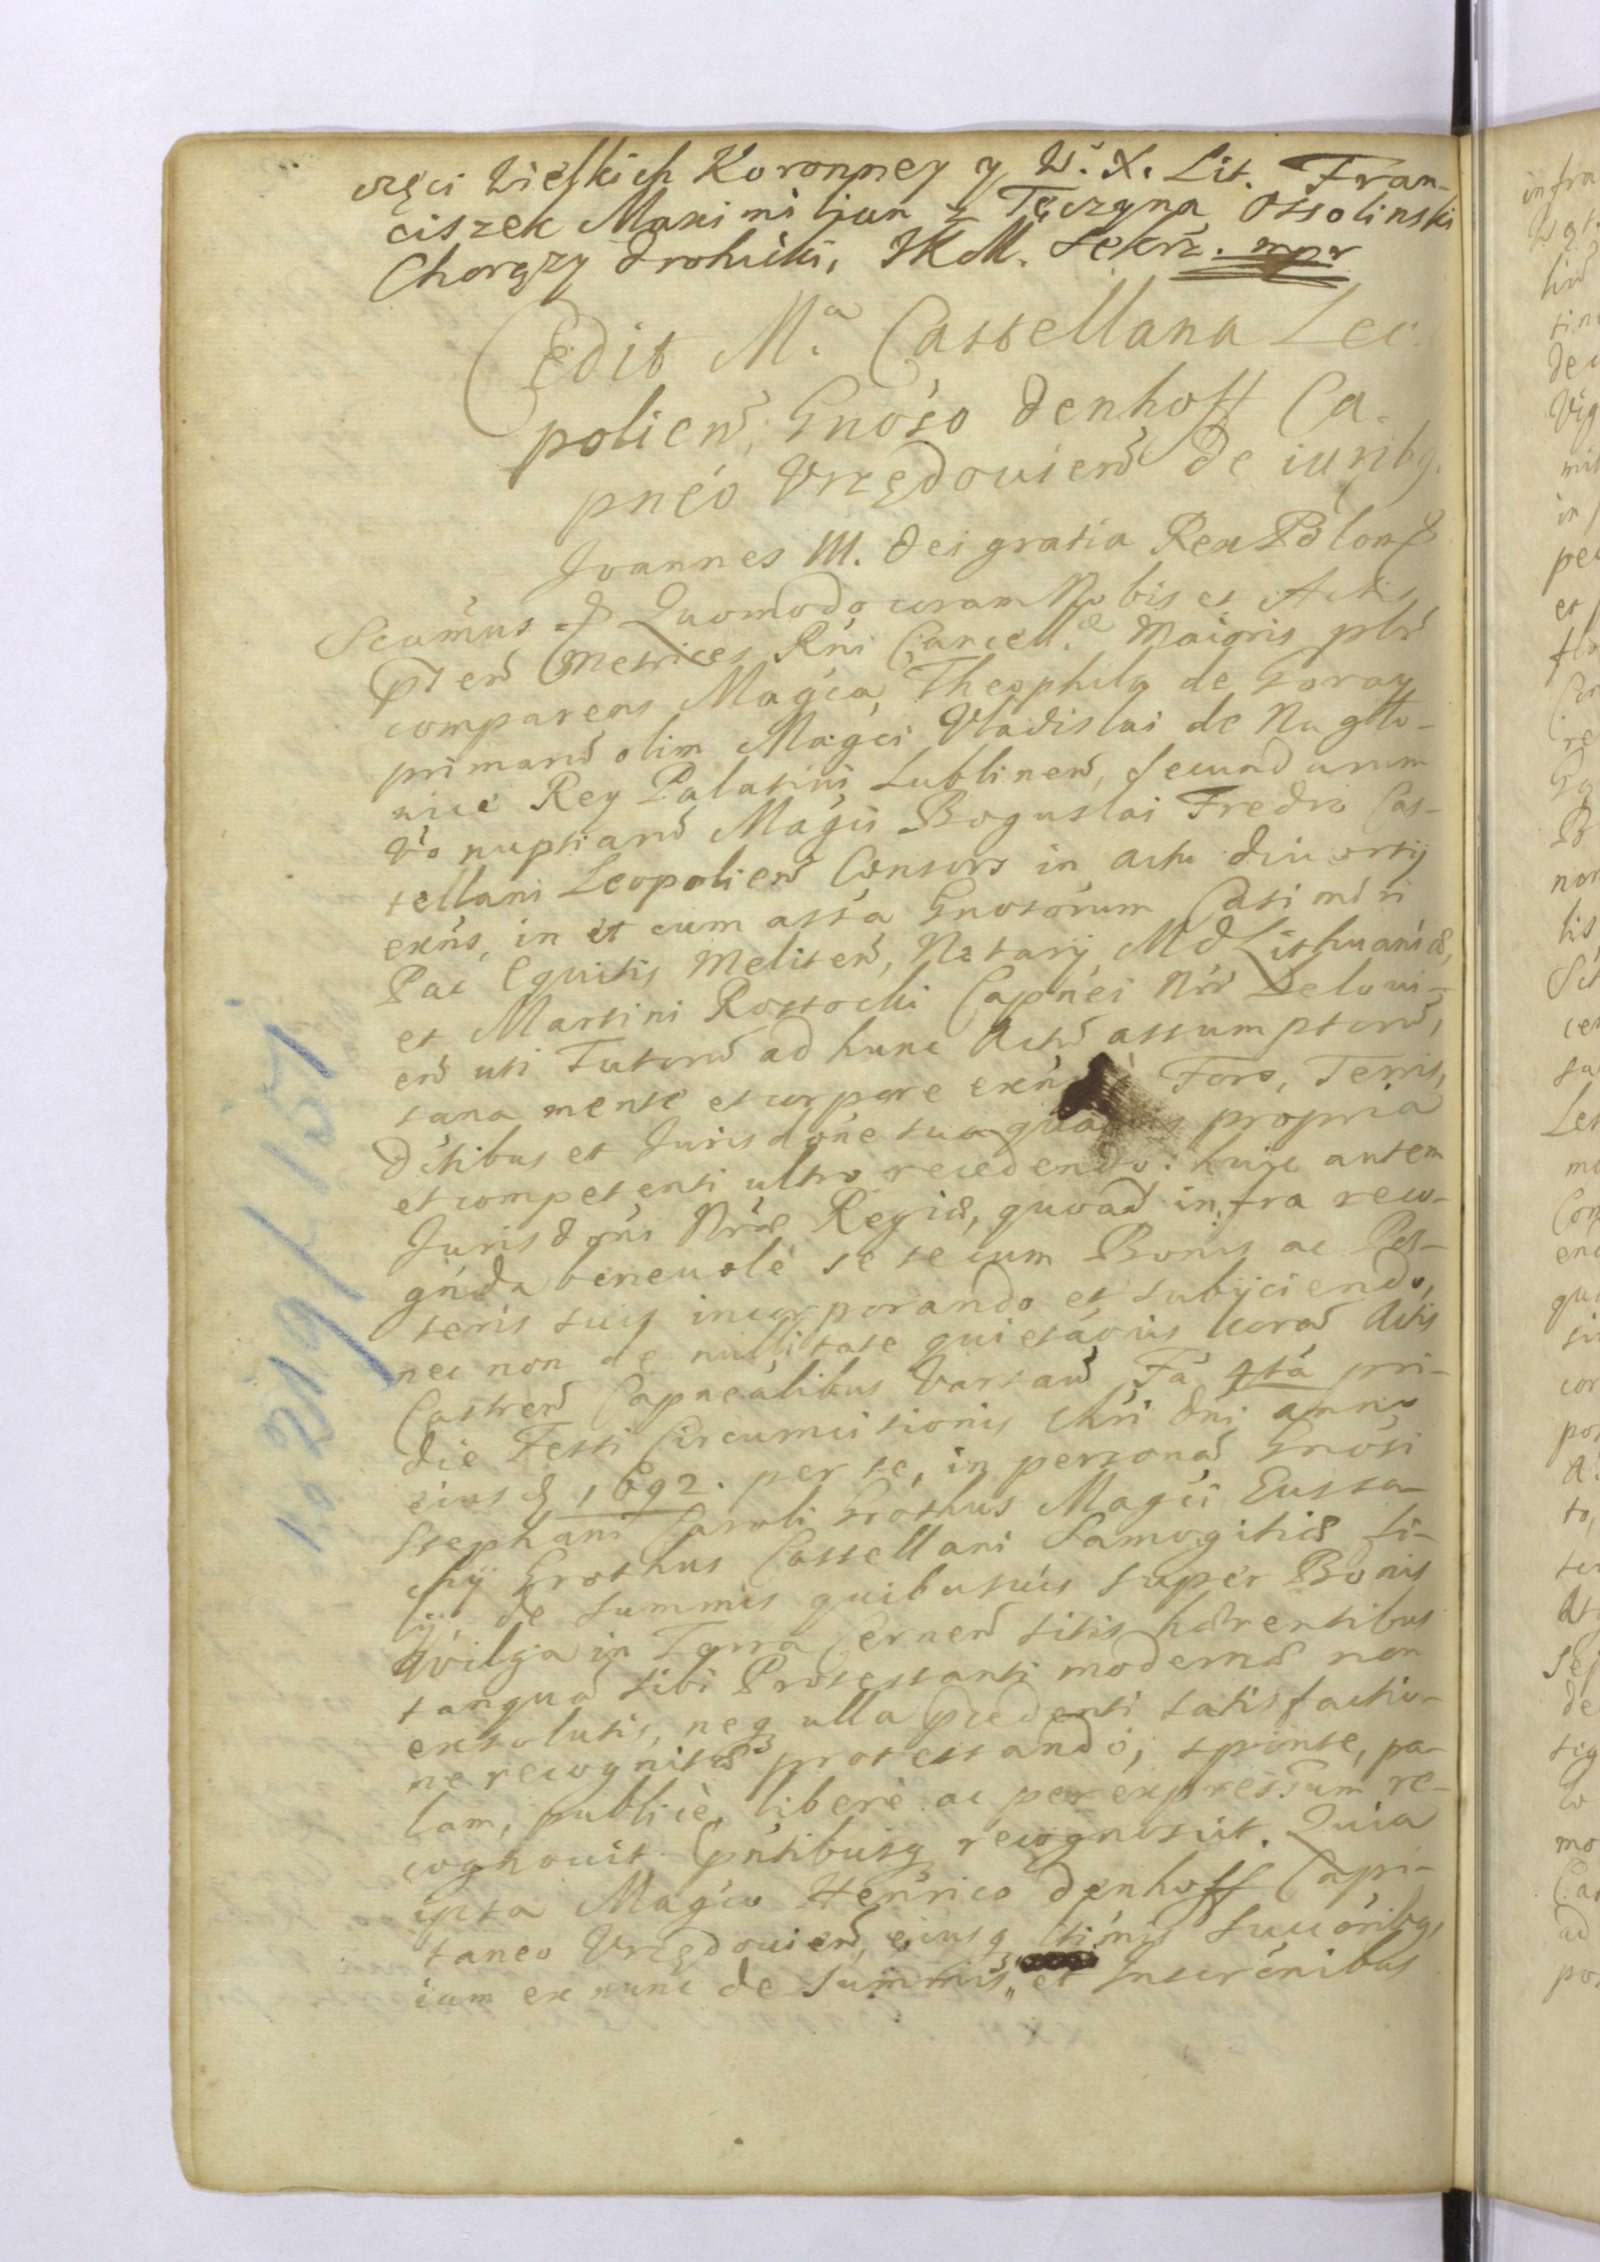 częci Wielkich Koronney y W. X. Lit. Fran-
ciszek Maximilian z Tęczyna Ossolinski
Chorąży drohicki, JKM. Sekrz. mpr
Cedit M.ca Castellana Leo-
polien, Gnoso Denhoff Ca-
pneo Vrzędovien de iuribq.
Joannes III. Dei gratia Rex Polon &
Scamus & Quomodo coram Nobis et Actis
pten Metrices Rni Cancell.ae Maioris plr
comparens Magca Theophila de Goray
primarū olim Magci Vladislai de Nagło-
wice Rey Palatini Lublinen, secundarum
vo nuptiarū Magci Boguslai Fredro Cas-
tellani Leopolien Consors in actu divortij
exns, in et cum assa Gnosorum Casimiri
Pac Equitis Meliten, Notarij M D Lithuaniæ,
et Martini Rostocki Capnei Nri Zelovi-
en uti Tutorū ad hunc Actū assumptorū,
sana mente et corpore exns Foro, Terris,
Dctibus et Jurisdone sua propria
et competenti ultro recedendo: huic autem
Jurisdoni Nræ Regiæ, quoad infra reco-
gnda benevolè se se cum Bonis ac Pos-
teris suis incorporando et subijciendo,
nec non de nullitate quietaonis corā Actis
Castren Capnealibus Varsaū Fa 4ta pri-
die Festi Circumcisionis Chri Dni anno
eiusd 1692. per se, in personā Gnosi
Stephani Caroli Grothus Magci Eusta-
chij Grothus Castellani Samogitiæ fi-
lij, de summis quibusuis super Bonis
Wilga in Terra Cernen sitis hærentibus
tanquā sibi Protestanti modernæ non
exsolutis, neq ulla precedenti satisfactio-
ne recognitæ protestando, sponte, pa-
lam, publicè, liberè ac per expressum re-
cognouit Pntibusq recognoscit. Quia
ipsa Magco Henrico Denhoff Capi-
taneo Vrzędovien, eiusq ltimis succoribq,
iam ex nunc de summis, et Inscrenibus